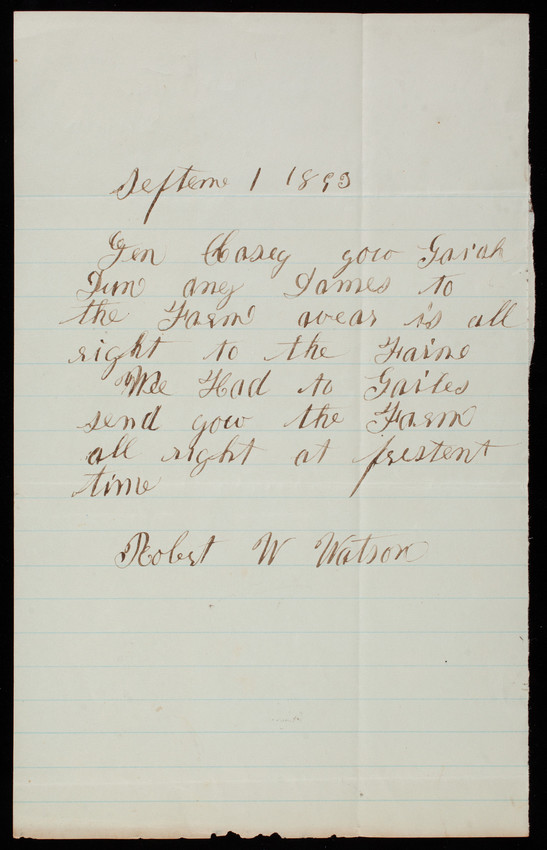 Septem 1 1893
Gen Casey you
any James to
the Farm wear is all
right to the Farme
Wee Had to
send you the Farm
all right at prestent
time
Robert W Watson